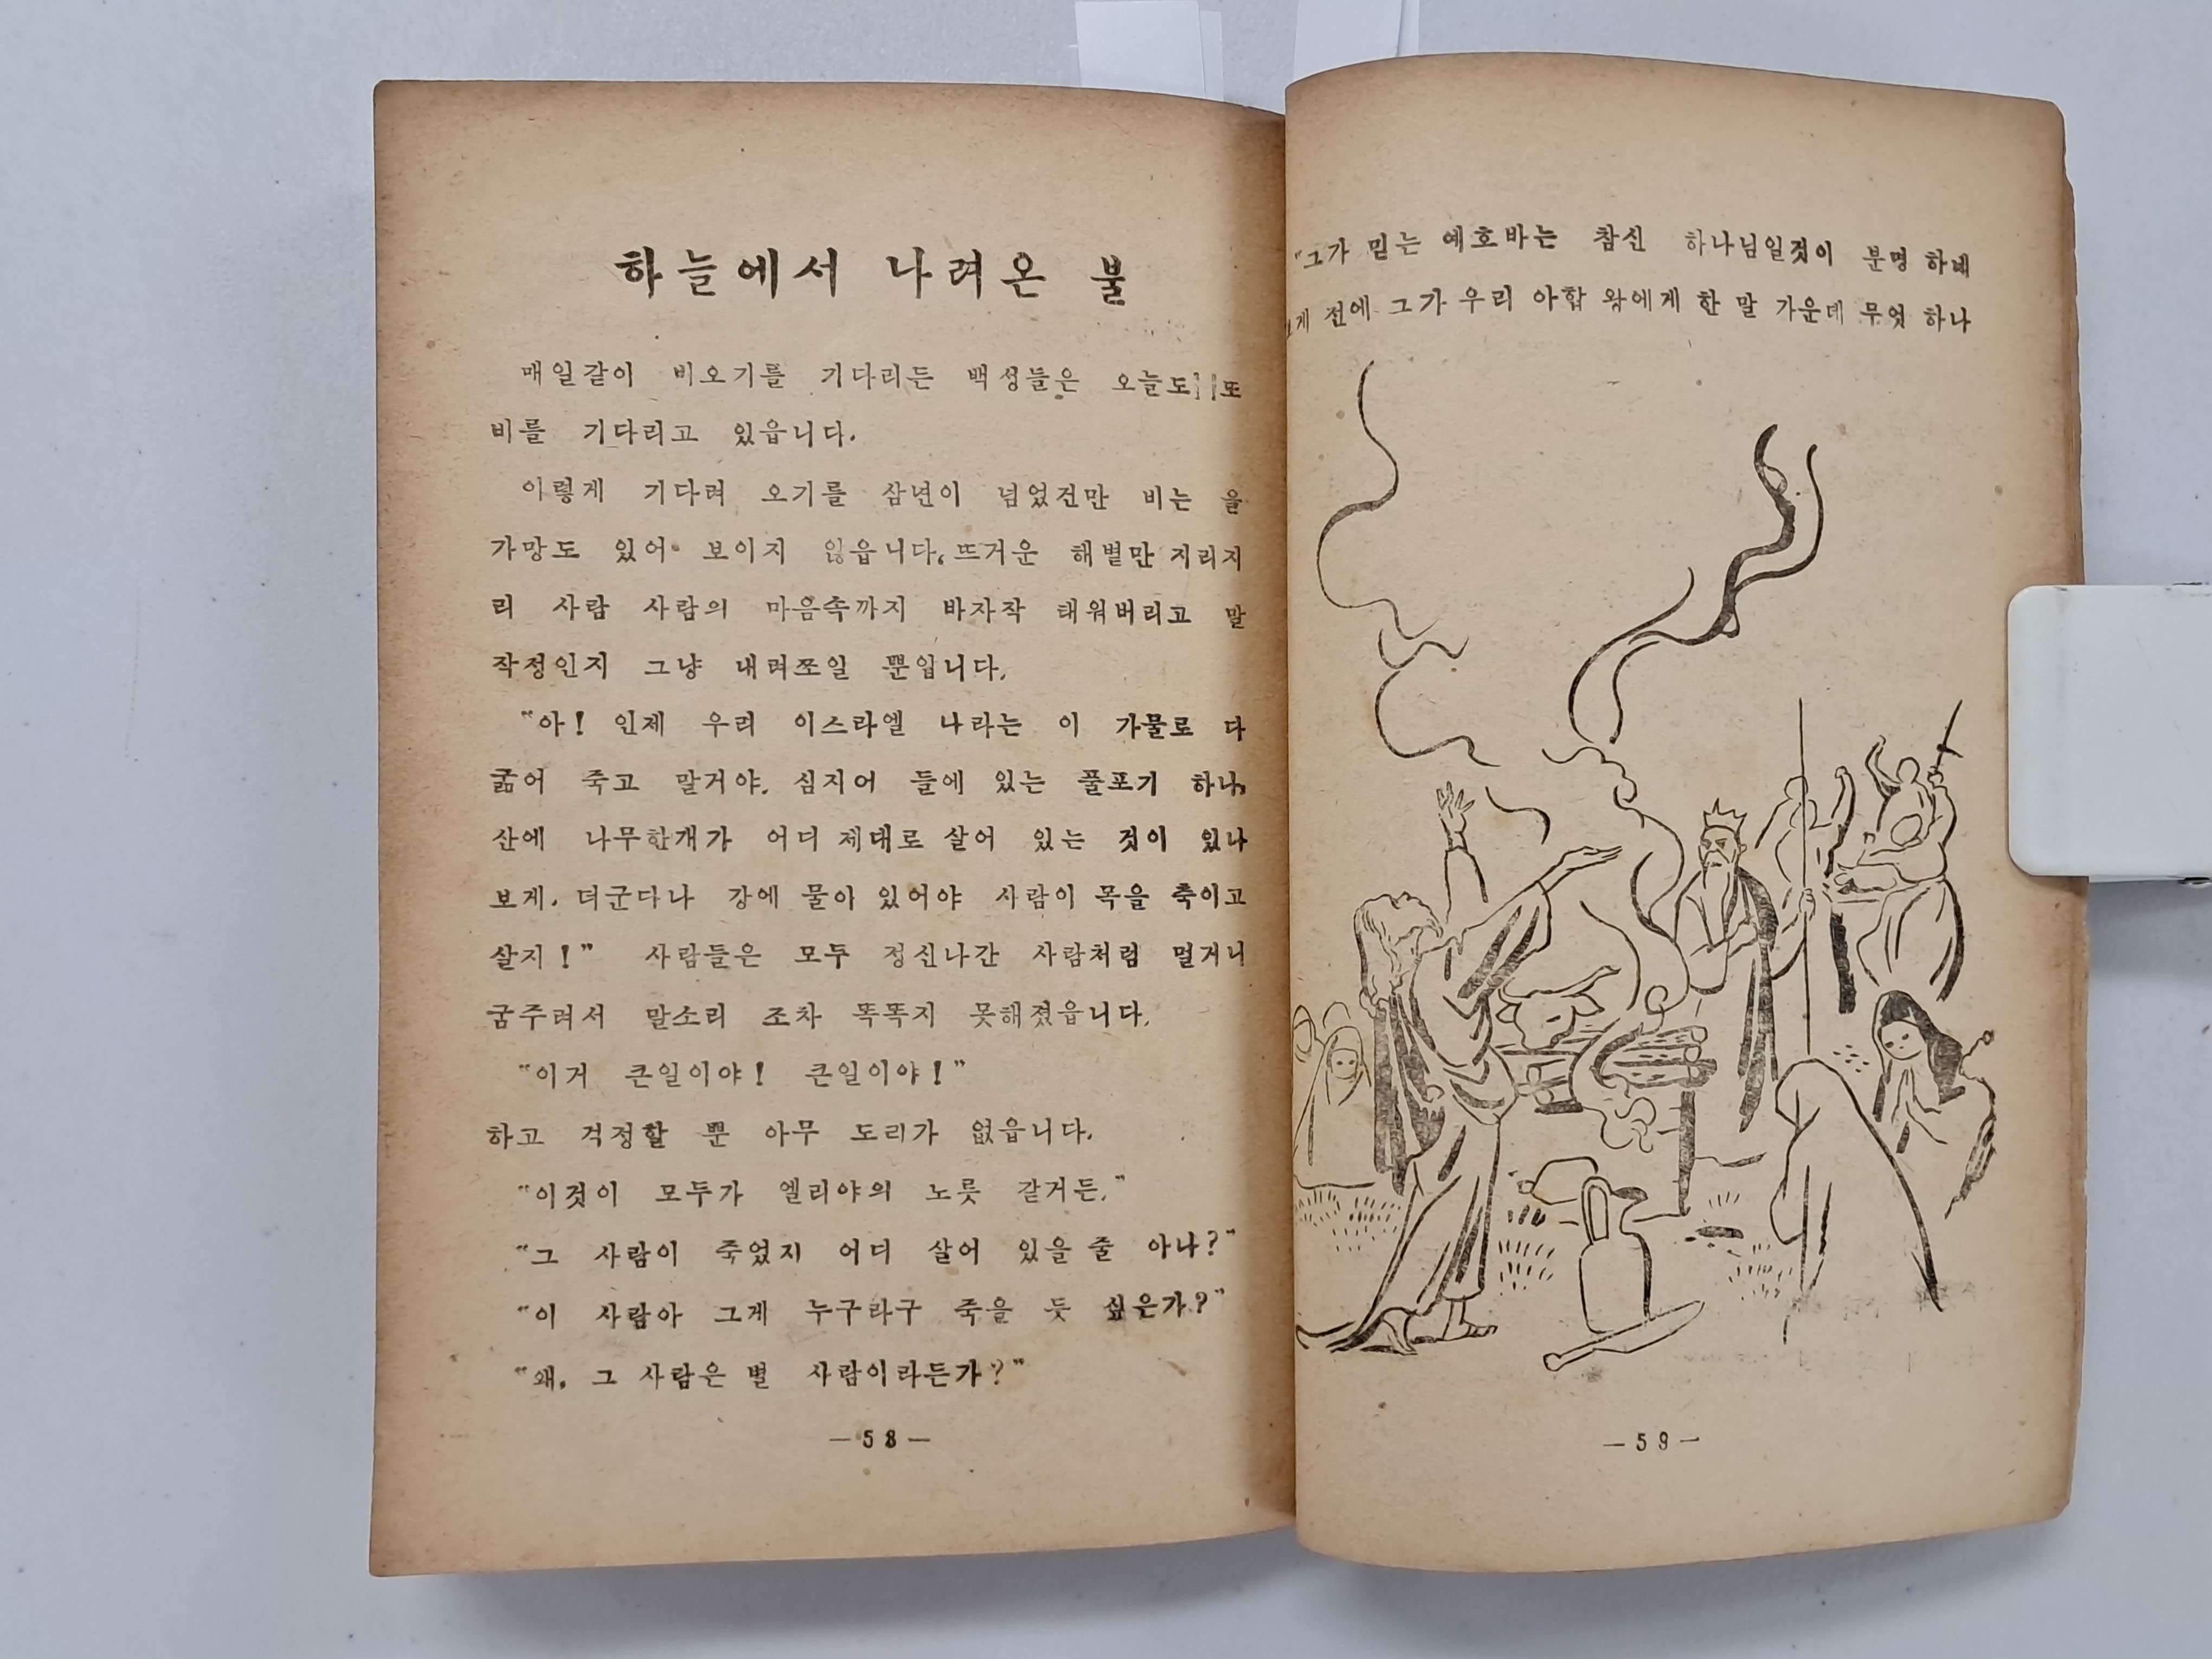 하늘에서 나려온 불
매일같이 비오기를 기다리든 백성들은 오늘도 또
비를 기다리고 있읍니다.
이렇게 기다려 오기를 삼년이 넘었건만 비는 올
가망도 있어 보이지 않읍니다. 뜨거운 해볕만 지리지
리 사람 사람의 마음속까지 바자작 태워버리고 말
작정인지 그냥 내려쪼일 뿐입니다.
“아! 인제 우리 이스라엘 나라는 이 가물로 다
굶어 죽고 말거야. 심지어 들에 있는 풀포기 하나,
산에 나무한개가 어디 제대로 살어 있는 것이 있나
보게. 더군다나 강에 물아 있어야 사람이 목을 축이고
살지!” 사람들은 모두 정신나간 사람처럼 멀거니
굼주려서 말소리 조차 똑똑지 못해졌읍니다.
“이거 큰일이야! 큰일이야!”
하고 걱정할 뿐 아무 도리가 없읍니다.
“이것이 모두가 엘리야의 노릇 같거든.”
“그 사람이 죽었지 어디 살어 있을 줄 아나?”
“이 사람아 그게 누구라구 죽을 듯 싶은가?”
“왜. 그 사람은 별 사람이라든가?”
—58—
“그가 믿는 예호바는 참신 하나님일것이 분명 하네
전에 그가 우리 아합 왕에게 한 말 가운데 무엇 하나
—59—